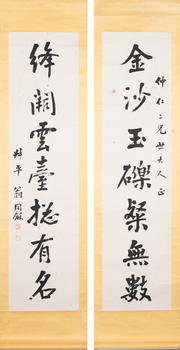 仲仁二兄世大人正
金沙玉礫粲無數
絳闕雲臺總有名
叔平翁同龢